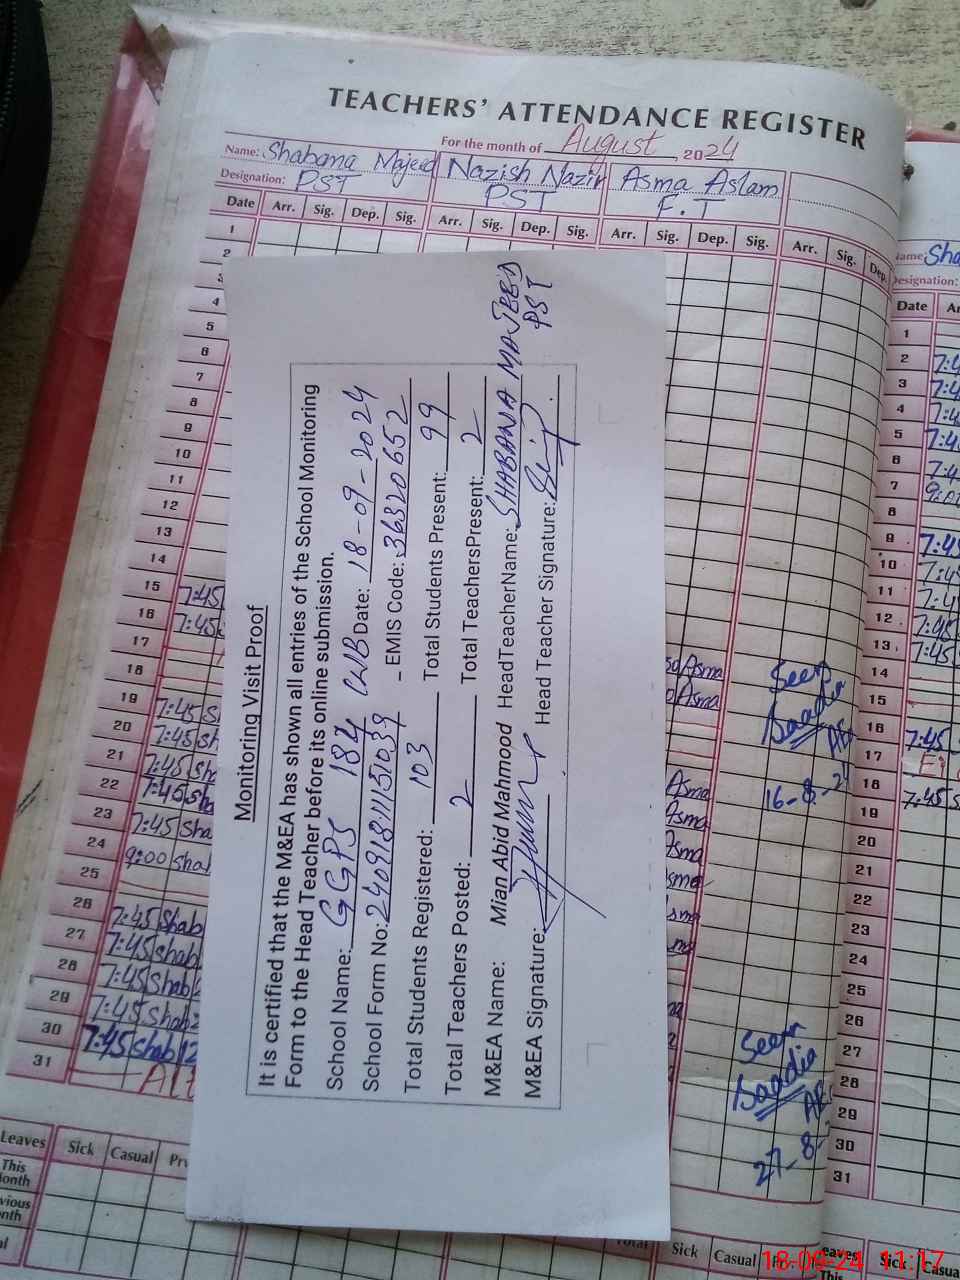 TEACHERS' ATTENDANCE REGISTER
For the month of August, 2024
Name: Shabana Majeed Nazish Nazir Asma Aslam
Designation: PST PST F.T
Date Arr. Sig. Dep. Sig. Arr. Sig. Dep. Sig. Arr. Sig. Dep. Sig. Arr. Sig. Dep.
1
2
3
4
5
6
7
8
9
10
11
12
13
14
15 7:45
16 7:45
17
18
19 7:45
20 7:45
21 7:45
22 7:45 sha
23 7:45 Sha
24 9:00 sha
25
26 7:45 Shab
27 7:45 shab
28 7:45 Shab
29 7:45 Shab
30 7:45 shab 12
31
Asma
Asma
Asma
Asma
Asma
Seen
Saadia
16-8-2
Seen
Saadia
27-8-2
Leaves Sick Casual
This
Month
Total Sick Casual
Monitoring Visit Proof
It is certified that the M&EA has shown all entries of the School Monitoring
Form to the Head Teacher before its online submission.
School Name: GGPS 184 WB Date: 18-09-2024
School Form No: 24091811151039 EMIS Code: 36320652
Total Students Registered: 103 Total Students Present: 99
Total Teachers Posted: 2 Total TeachersPresent: 2
M&EA Name: Mian Abid Mahmood HeadTeacherName: SHABANA MAJEED
PST
M&EA Signature: Head Teacher Signature:
Name Sha
Designation:
Date
1
2 7:4
3 7:4
4 7:4
5 7:4
6 7:4
7 9:00
8
9 7:45
10 7:4
11 7:4
12 7:45
13 7:45
14
15
16 7:45
17
18 7:45
19
20
21
22
23
24
25
26
27
28
29
30
31
Leaves Sick Casua
This
18-09-24 11:17